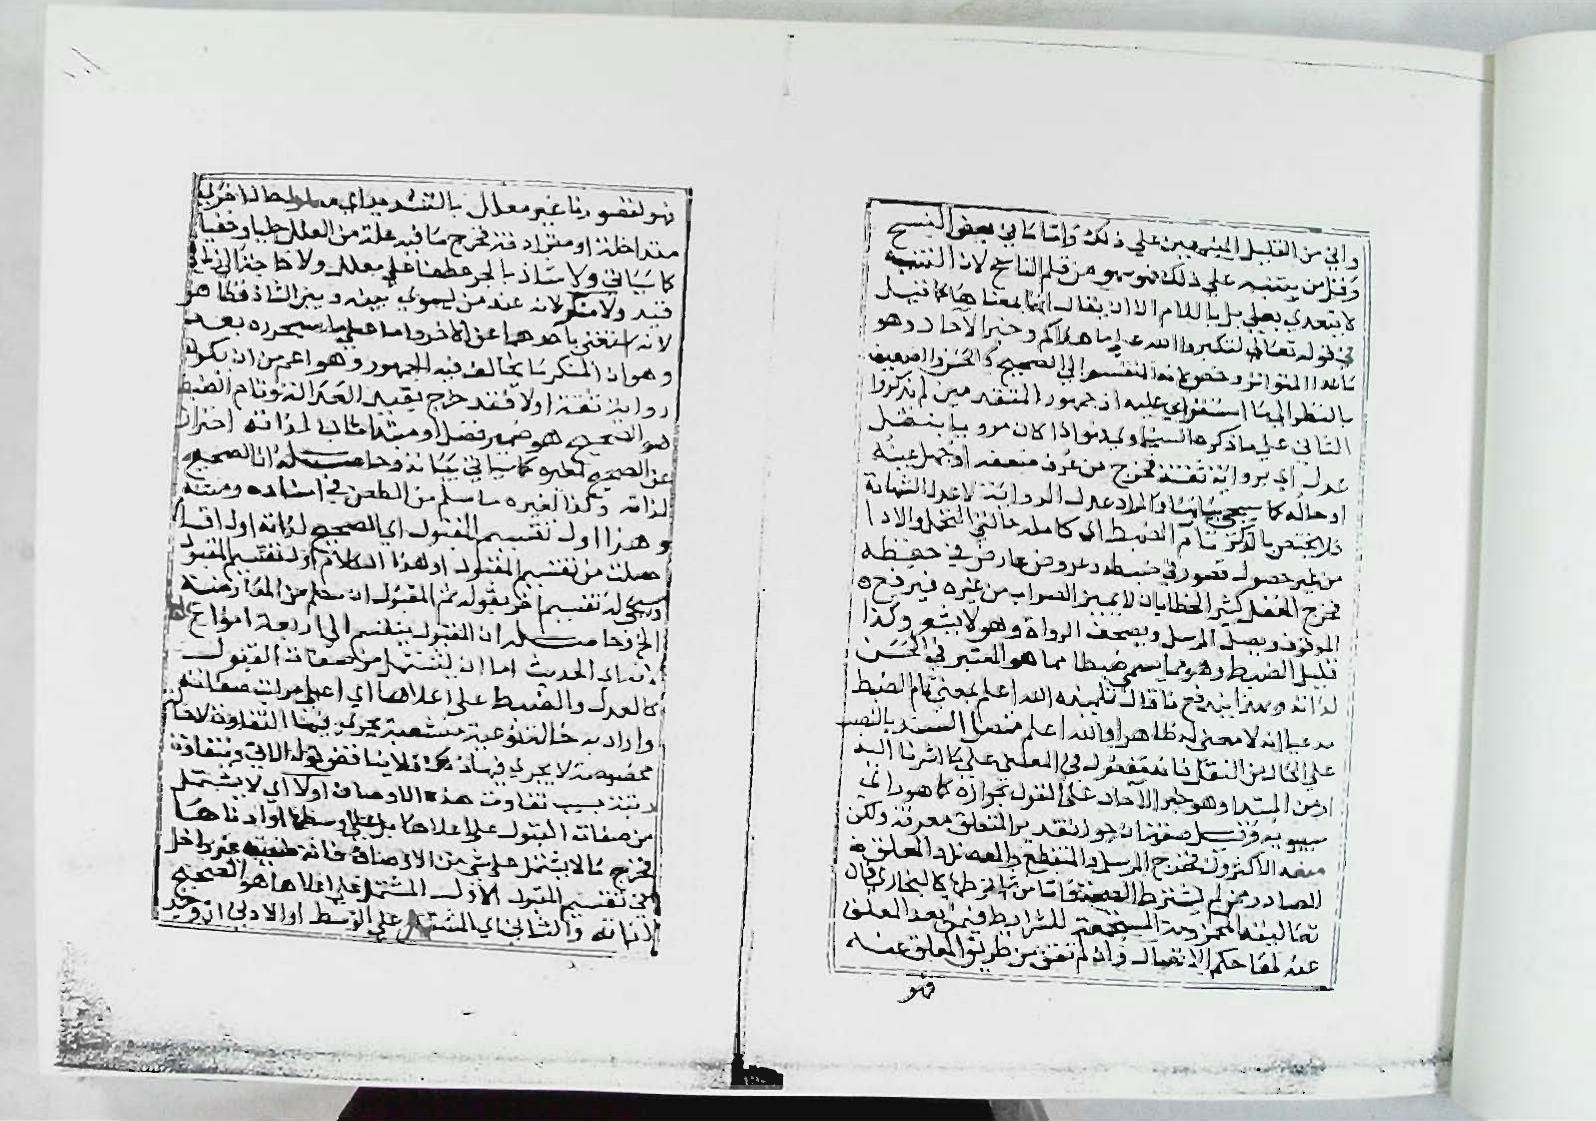 واني من القليل المنبهين على ذلك واما ما في بعض النسخ
وقل من يتنبه على ذلك فهو سهو من قلم الناسخ لان التنبيه
لا يتعدى بعلى بل باللام الا ان يقال انها لمعناها كما قيل
في قوله تعالى لتكبروا الله على ما هداكم وخبر الآحاد وهو
ما عدا المتواتر وخصوصا المنقسم الى الصحيح والحسن والضعيف
بالنظر الى اذ جمهور المتقدمين لم يذكروا
الثاني على ما ذكره اذا كان مرويا بنقل
عدل اي برواية ثقة فخرج من عرف ضعفه او جهل عينه
او حاله كما سيجي بيانها والمراد عدل الرواية لا عدل الشهادة
فلا يختص بالذكر تام الضبط اي كامله حالتي التحمل والادا
من غير حصول قصور في ضبطه وعروض عارض في حفظه
فخرج المغفل كثير الخطا بان لا يميز الصواب من غيره فيرفع
الموقوف ويصل المرسل ويصحف الرواة وهو لا يشعر وكذا
قليل الضبط وهو مما يسمى ضبطا مما هو المعتبر في الحسن
لذاته وبهذا يندفع ما قال تلميذه الله اعلم بمعنى تام الضبط
مدعيا انه لا معنى له ظاهرا والله اعلم متصل السند بالنصب
على الحال من النقل فانه مفعول في المعنى على ما اشرنا اليه
او من المبتدا وهو خبر الآحاد على القول بجوازه كما هو راي
سيبويه وقيل صفته ان جوز تقدير المتعلق معرفة ولكن
منعه الاكثرون فخرج المرسل والمنقطع والمعضل والمعلق
الصادر ممن لم يشترط الصحة واما من شرطها كالبخاري فان
تعاليقه المجزومة المستجمعة للشرايط فيمن بعد المعلق
عنه لها حكم الاتصال وان لم نقف من طريق المعلق عنه
فهو
فهو لقصورنا غير معلل بالتنبيه
متداخلة او مترادفة فخرج ما فيه علة من العلل جليا وخفيا
كما سيأتي ولا شاذ بالجر عطفا على معلل ولا حاجة الى زيادة
قيد ولا منكر لانه عند من يسوي بينه وبين الشاذ فظاهر
لانه استغنى باحدهما عن الآخر واما على ما سيحرره بعد
وهو ان المنكر ما يخالف فيه الجمهور وهو اعم من ان يكون
رواية ثقة او لا فقد خرج بقيد العدالة وتام الضبط
هو الصحيح هو ضمير فصل او مبتدا ثان لذاته احتراز
عن الصحيح لغيره كما سياتي بيانه وحاصله ان الصحيح
لذاته وكذا لغيره ما سلم من الطعن في اسناده ومتنه
وهذا اول تقسيم المقبول اي الصحيح لذاته اول اقسام
حصلت من تقسيم المقبول او هذا الكلام اول تقسيم المقبول
ويجي له تقسيم آخر بقوله ثم المقبول ان سلم من المعارضة
الخ وحاصله ان المقبول ينقسم الى اربعة انواع
لانه اي الحديث اما ان يشتمل من صفات القبول
كالعدل والضبط على اعلاها اي اعلى مراتب صفاته
واراد به حالة نوعية متشعبة يجري فيها التفاوت لا حالة
مخصوصة لا يجري فيها ذلك فلا يناقض قوله الآتي وتتفاوت
رتبه بسبب تفاوت هذه الاوصاف اولا اي لا يشتمل
من صفات القبول على اعلاها بل على اوسطها او ادناها
فخرج ما لا يشتمل على شي من الاوصاف فانه ضعيف غير داخل
في تقسيم المقبول الاول المشتمل على اعلاها هو الصحيح
لذاته والثاني اي المشتمل على الاوسط او الادنى ان وجد